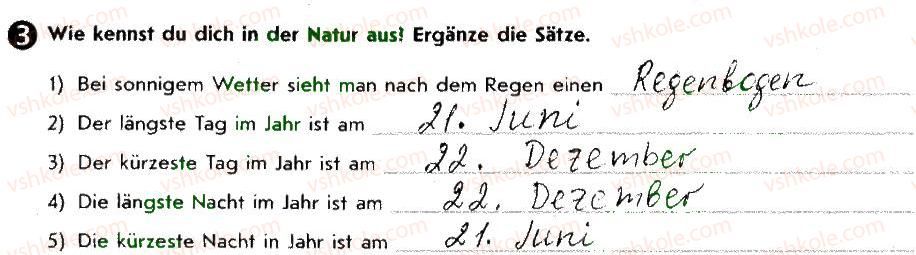 3 Wie kennst du dich in der Natur aus? Ergänze die Sätze.
1) Bei sonnigem Wetter sieht man nach dem Regen einen Regenbogen
2) Der längste Tag im Jahr ist am 21. Juni
3) Der kürzeste Tag im Jahr ist am 22. Dezember
4) Die längste Nacht im Jahr ist am 22. Dezember
5) Die kürzeste Nacht in Jahr ist am 21. Juni